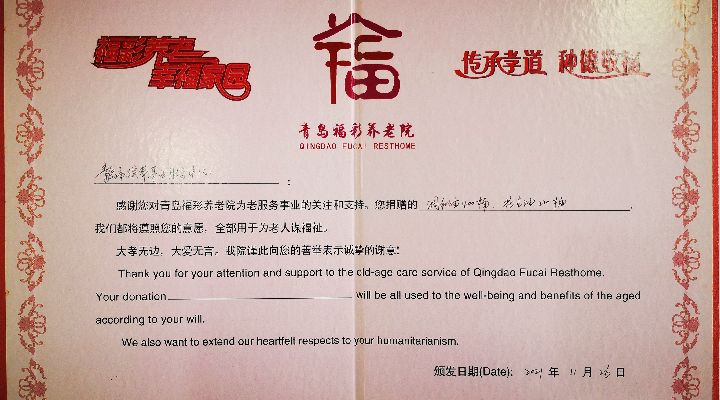 福彩养老
幸福家园
福
传承孝道 种德收福
青岛福彩养老院
QINGDAO FUCAI RESTHOME
:
感谢您对青岛福彩养老院为老服务事业的关注和支持。您捐赠的
我们都将遵照您的意愿，全部用于为老人谋福祉。
大孝无边，大爱无言。我院谨此向您的善举表示诚挚的谢意!
Thank you for your attention and support to the old-age care service of Qingdao Fucai Resthome.
Your donation will be all used to the well-being and benefits of the aged
according to your will.
We also want to extend our heartfelt respects to your humanitarianism.
颁发日期(Date): 2021 年 11 月 日